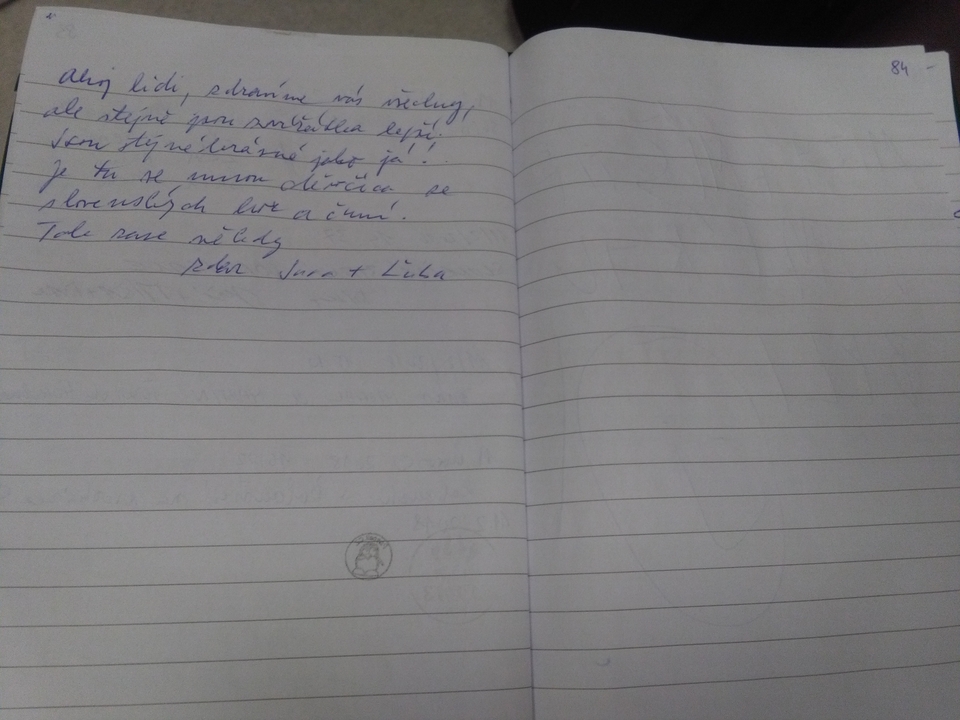 84
Ahoj lidi, zdravíme vás všechny,
ale stejně jsou zvířátka lepší.
Jsou stejně krásné jako já!
Je tu se mnou děvčica se
slovenských hor a čumí.
Tak zase někdy
zdar Jura + Ľuba